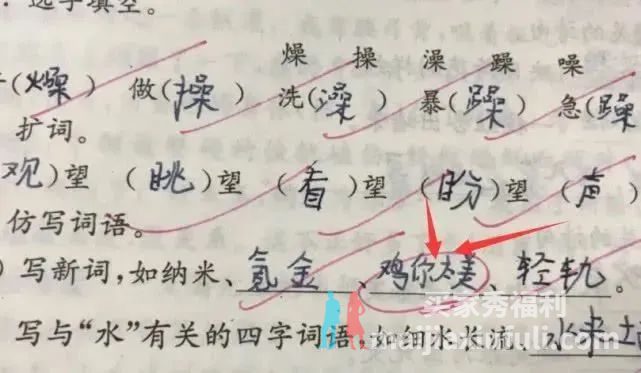 选字填空。
燥 操 澡 躁 噪
(燥) 做(操) 洗(澡) 暴(躁) 急(躁
扩词。
观)望 (眺)望 (看)望 (盼)望 (声)
仿写词语。
)写新词,如纳米、氪金、鸡你太美、轻轨。
写与“水”有关的四字词语,如细水长流、水来土
买家秀福利
maijiaxiufuli.com